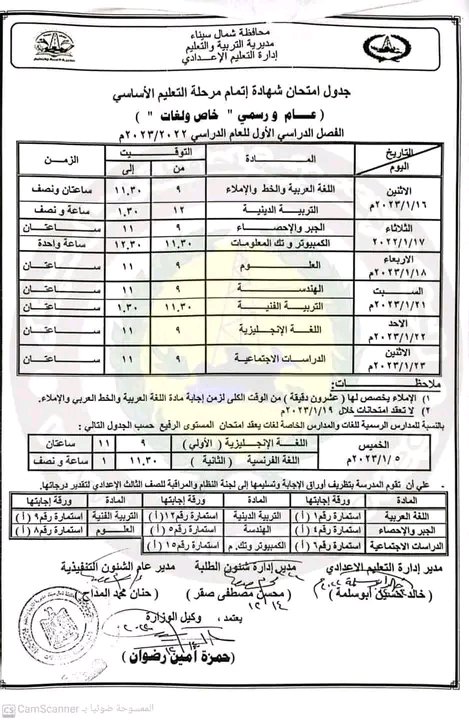 محافظة شمال سيناء
مديرية التربية والتعليم
إدارة التعليم الإعدادي
جدول امتحان شهادة إتمام مرحلة التعليم الأساسي
( عـام و رسمي " خاص ولغات " )
الفصل الدراسي الأول للعام الدراسي ٢٠٢٣/٢٠٢٢م
التاريخ اليوم المـــادة التوقيت من إلى الزمن
الاثنين ٢٠٢٣/١/١٦م اللغة العربية والخط والإملاء ٩ ١١.٣٠ ساعتان ونصف
التربية الدينية ١٢ ١.٣٠ ساعة و نصف
الثلاثاء ٢٠٢٢/١/١٧م الجبر والإحصاء ٩ ١١ ساعتان
الكمبيوتر و تك المعلومات ١١.٣٠ ١٢.٣٠ ساعة واحدة
الاربعاء ٢٠٢٣/١/١٨م العلوم ٩ ١١ ساعتان
السبت ٢٠٢٣/١/٢١م الهندسة ٩ ١١ ساعتان
التربية الفنية ١١.٣٠ ١.٣٠ ساعتان
الاحد ٢٠٢٣/١/٢٢م اللغة الإنجليزية ٩ ١١ ساعتان
الاثنين ٢٠٢٣/١/٢٣م الدراسات الاجتماعية ٩ ١١ ساعتان
ملاحظات :
١) الإملاء يخصص لها ( عشرون دقيقة ) من الوقت الكلى لزمن إجابة مادة اللغة العربية والخط العربي والإملاء.
٢) لا تعقد امتحانات خلال ٢٠٢٣/١/١٩م
بالنسبة للمدارس الرسمية للغات والمدارس الخاصة لغات يعقد امتحان المستوى الرفيع حسب الجدول التالي :
الخميس ٢٠٢٣/١/٥م اللغة الإنجليزية ( الأولي ) ٩ ١١ ساعتان
اللغة الفرنسية ( الثانية ) ١١.٣٠ ١ ساعة و نصف
- علي أن تقوم المدرسة بتظريف أوراق الإجابة وتسليمها إلى لجنة النظام والمراقبة للصف الثالث الإعدادي لتقدير درجاتها.
المادة ورقة إجابتها المادة ورقة إجابتها المادة ورقة إجابتها
اللغة العربية استمارة رقم١ ( أ ) التربية الدينية استمارة رقم١٢ ( أ ) التربية الفنية استمارة رقم٩ ( أ )
الجبر والإحصاء استمارة رقم٤ ( أ ) الهندسة استمارة رقم٥ ( أ ) العلوم استمارة رقم٨ ( أ )
الدراسات الاجتماعية استمارة رقم٦ ( أ ) الكمبيوتر وتك.م استمارة رقم١٥ ( أ )
مدير إدارة التعليم الإعدادي مدير إدارة شئون الطلبة مدير عام الشئون التنفيذية
( خالد حسين أبوسلمة ) ( محسن مصطفى صقر ) ( حنان محمد المداح )
يعتمد ، وكيل الوزارة
( حمزة أمين رضوان )
الممسوحة ضوئيا بـ CamScanner
CS